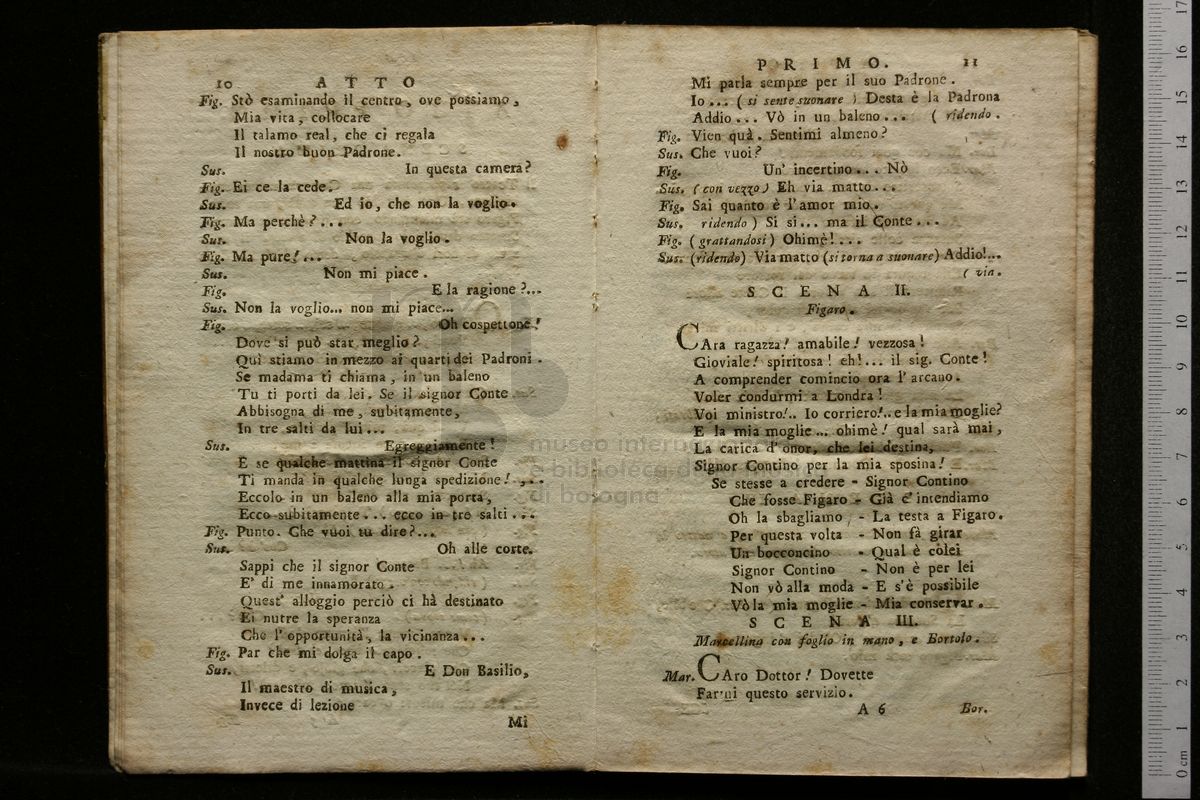 10 ATTO
Fig. Stò esaminando il centro, ove possiamo,
Mia vita, collocare
Il talamo real, che ci regala
Il nostro buon Padrone.
Sus. In questa camera?
Fig. Ei ce la cede.
Sus. Ed io, che non la voglio.
Fig. Ma perchè?...
Sus. Non la voglio.
Fig. Ma pure!...
Sus. Non mi piace.
Fig. E la ragione?...
Sus. Non la voglio... non mi piace...
Fig. Oh cospettone!
Dove si può star meglio?
Quì stiamo in mezzo ai quarti dei Padroni.
Se madama ti chiama, in un baleno
Tu ti porti da lei. Se il signor Conte
Abbisogna di me, subitamente,
In tre salti da lui...
Sus. Egreggiamente!
E se qualche mattina il signor Conte
Ti manda in qualche lunga spedizione!...
Eccolo in un baleno alla mia porta,
Ecco subitamente... ecco in tre salti...
Fig. Punto. Che vuoi tu dire?...
Sus. Oh alle corte.
Sappi che il signor Conte
E' di me innamorato.
Quest' alloggio perciò ci hà destinato
Ei nutre la speranza
Che l'opportunità, la vicinanza...
Fig. Par che mi dolga il capo.
Sus. E Don Basilio,
Il maestro di musica,
Invece di lezione
Mi
PRIMO. 11
Mi parla sempre per il suo Padrone.
Io... (si sente suonare) Desta è la Padrona
Addio... Vò in un baleno... (ridendo.
Fig. Vien quà. Sentimi almeno?
Sus. Che vuoi?
Fig. Un' incertino... Nò
Sus. (con vezzo) Eh via matto...
Fig. Sai quanto è l'amor mio.
Sus. ridendo) Si si... ma il Conte...
Fig. (grattandosi) Ohimè!...
Sus. (ridendo) Via matto (si torna a suonare) Addio!...
(via.
SCENA II.
Figaro.
CAra ragazza! amabile! vezzosa!
Gioviale! spiritosa! eh!... il sig. Conte!
A comprender comincio ora l'arcano.
Voler condurmi a Londra!
Voi ministro!.. Io corriero!.. e la mia moglie?
E la mia moglie... ohimè! qual sarà mai,
La carica d'onor, che lei destina,
Signor Contino per la mia sposina!
Se stesse a credere - Signor Contino
Che fosse Figaro - Già c'intendiamo
Oh la sbagliamo - La testa a Figaro.
Per questa volta - Non fà girar
Un bocconcino - Qual è colei
Signor Contino - Non è per lei
Non vò alla moda - E s'è possibile
Vò la mia moglie - Mia conservar.
SCENA III.
Marcellina con foglio in mano, e Bortolo.
Mar. CAro Dottor! Dovette
Farmi questo servizio.
A 6 Bor.
museo internaz
e biblioteca della musica
di bologna
0 cm 1 2 3 4 5 6 7 8 9 10 11 12 13 14 15 16 17